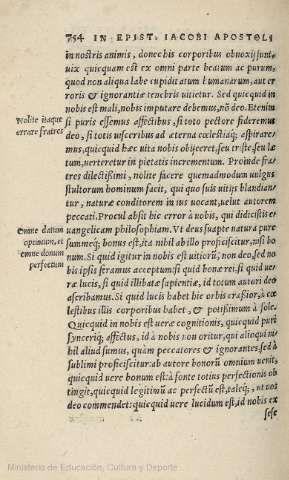 754 IN EPIST. IACOBI APOSTOLI
in nostris animis, donec his corporibus obnoxij sunt,
uix quicquam est ex omni parte beatum ac purum,
quod non aliqua labe cupiditatum humanarum, aut er
roris & ignorantiæ tenebris uitietur. Sed quicquid in
nobis est mali, nobis imputare debemus, nõ deo. Etenim
Nolite itaque
errare fratres
si puris essemus affectibus, si toto pectore fideremus
deo, si totis uisceribus ad æterna cœlestiaq; aspiraremus,
quicquid hæc uita nobis obijceret, seu triste, seu læ
tum, uerteretur in pietatis incrementum. Proinde fra
tres dilectissimi, nolite facere quemadmodum uulgus
stultorum hominum facit, qui quo suis uitijs blandian
tur, naturæ conditorem in ius uocant, uelut autorem
peccati. Procul absit hic error à nobis, qui didicistis e
Omne datum
optimum, et
omne donum
perfectum
uangelicam philosophiam. Vt deus suapte natura pure
summeq; bonus est, ita nihil ab illo proficiscitur, nisi bo
num. Si quid igitur in nobis est uitiorũ, non deo, sed no
bis ipsis feramus acceptum: si quid bonæ rei, si quid ue
ræ lucis, si quid illibatæ sapientiæ, id totum autori deo
ascribamus. Si quid lucis habet hic orbis crassior, à cœ
lestibus illis corporibus habet, & potissimum à sole.
Quicquid in nobis est ueræ cognitionis, quicquid puri
syncerique affectus, id à nobis non oritur, qui alioqui ni
hil aliud sumus, quàm peccatores & ignorantes, sed à
sublimi proficiscitur: ab autore bonorũ omnium uenit,
quicquid uere bonum est: à fonte totius perfectionis ob
tingit, quicquid legitimũ ac perfectũ est, taleq;, ut nos
deo commendet: quicquid uere lucidum est, id nobis ex
sese
Ministerio de Educación, Cultura y Deporte